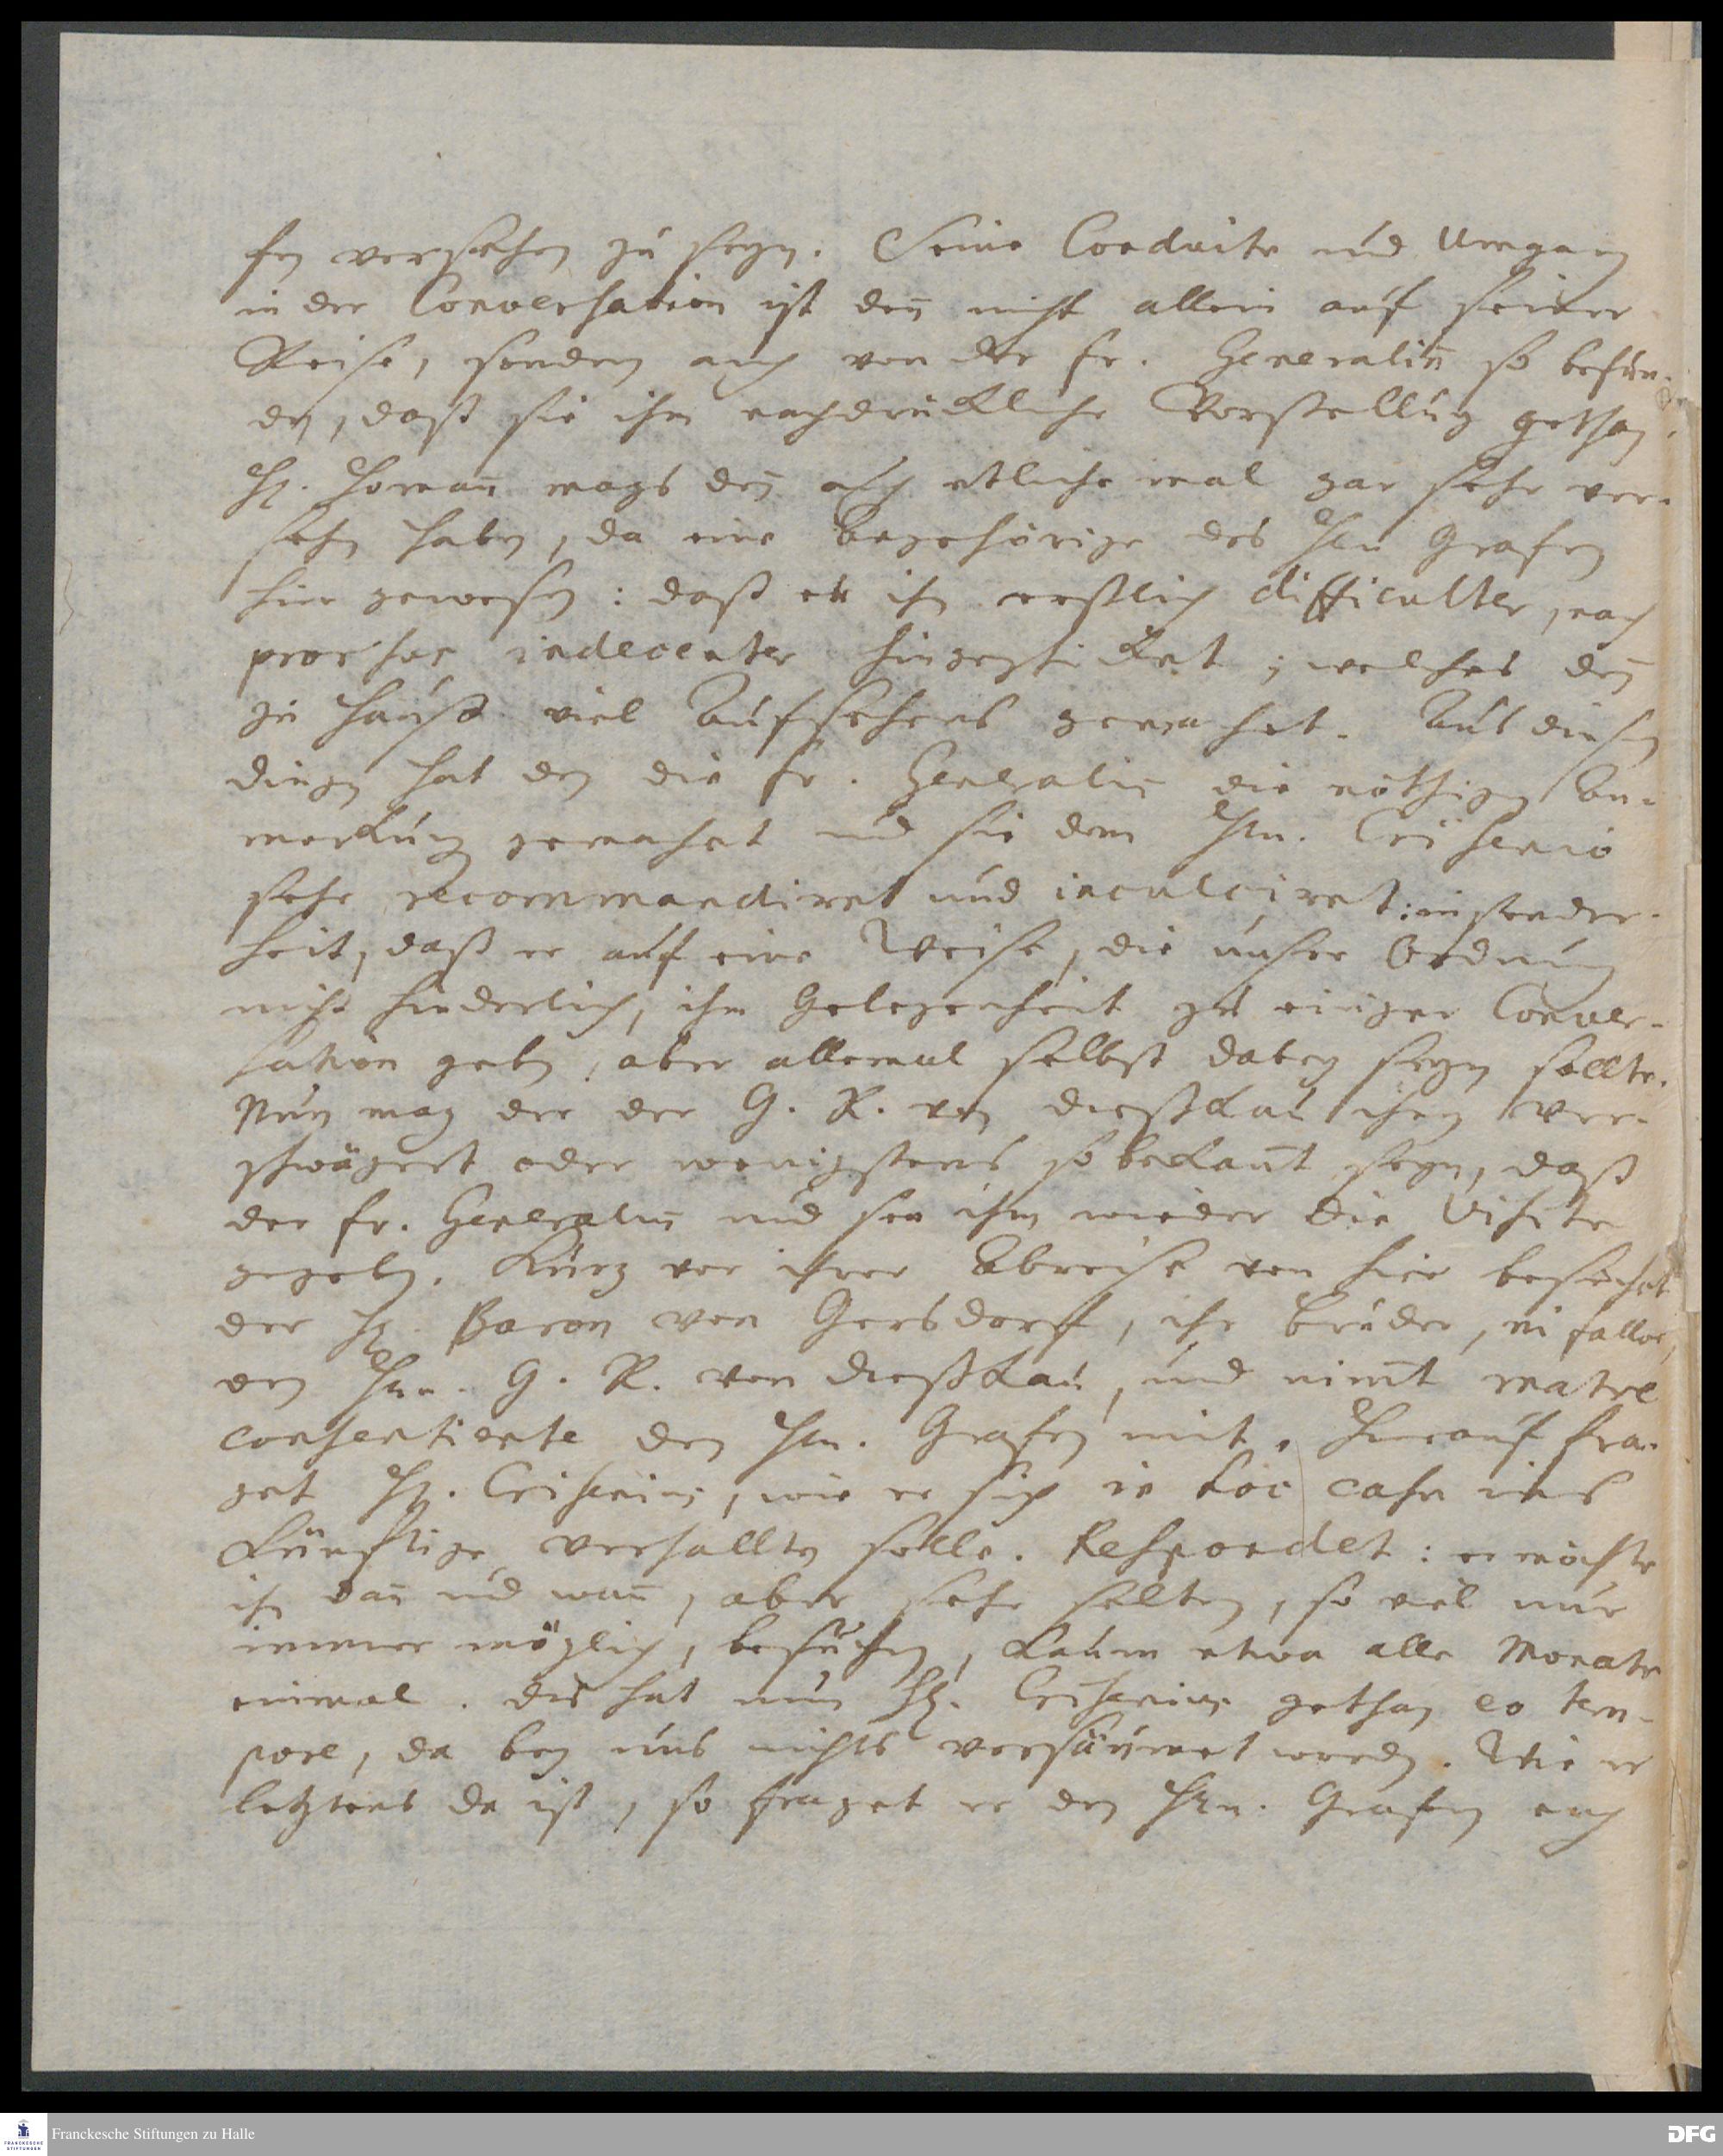 sen versehen zu seyn. Seine Conduite und Umgang
in der Conversation ist deñ nicht allein auf seiner
Reise, sondern auch von der Fr. Generaliñ so befun-
den, daß sie ihm nachdrückliche Vorstellung gethan.
H. Homañ mags deñ auch etliche mal gar sehr ver-
sehen haben, da eine Angehörige des Hrn Grafen
hier gewesen: daß er ihn erstlich difficulter, nach
prorsus indecenter hingeschicket; welches deñ
zu Hause viel Aufsehens gemachet. Aus diesen
Dingen hat den die Fr. Generaliñ die nöthigen An-
merkung gemachet und sie dem Hrn. Crisenio
sehr recommandiret und inculciret: insonder-
heit, daß er auf eine Weise, die unser Ordnung
nicht hinderlich, ihm Gelegenheit zu einiger Conver-
sation geben, aber allemal selbst dabey seyn sollte.
Nun mag der der G. R. von Dießkau ihnen ver-
schwägert oder wenigstens so bekañt seyn, daß
der Fr. Generaliñ und sie ihm wieder die Visite
gegeben. Kurz vor ihrer Abreise von hier besuchet
der H. Baron von Gersdorff, ihr Bruder, ni fallor,
den Hrn. G. R. von Dießkau, und nimt matre
consentiente den Hrn. Grafen mit. Hierauf fra-
get H. Crisenius, wie er sich in hoc casu ins
künftige verhallten solle. Respondet: er möchte
ihn dañ und wañ, aber sehr selten, so viel nur
immer möglich, besuchen, kaum etwa alle Monate
einmal. Dis hat nun H. Crisenius gethan eo tem-
pore, da bey uns nichts versäumet worden. Wie er
letztens da ist, so fraget er den Hrn. Grafen auch
Franckesche Stiftungen zu Halle
FRANCKESCHE
STIFTUNGEN
DFG